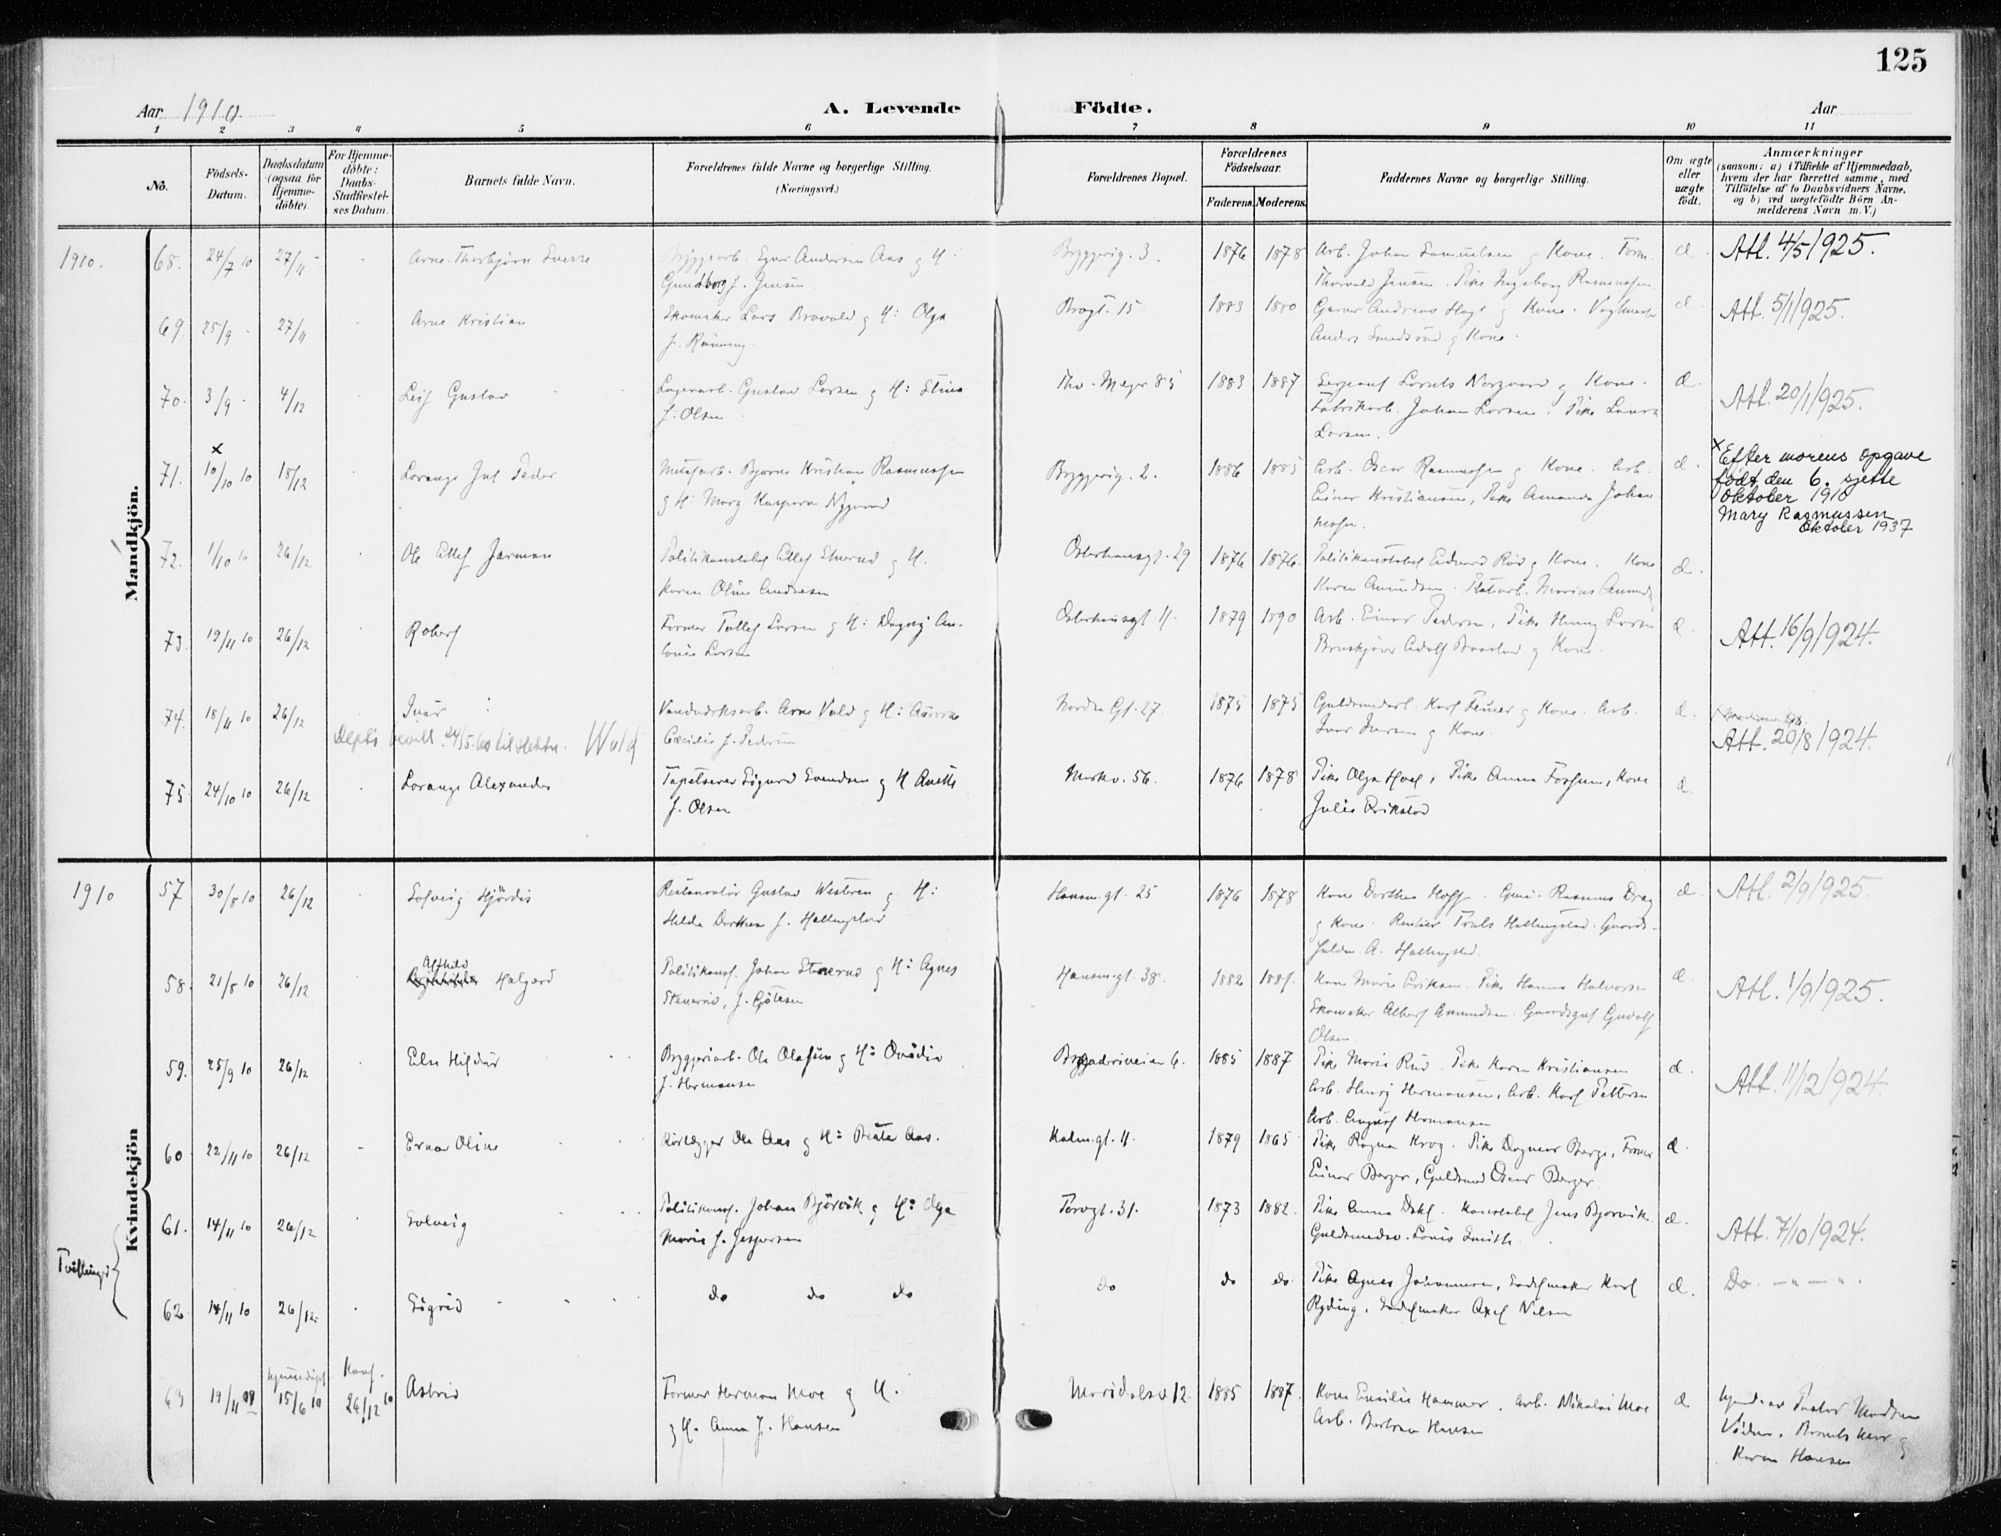 125
Aar 1910.
A. Levende Födte.
Aar
1 2 3 4 5 6 7 8 9 10 11
No.
Födsels-Datum.
Daabsdatum (ogsaa for Hjemme-döbte)
For Hjemme-döbte: Daabs-Stadfæstel-ses Datum.
Barnets fulde Navn.
Forældrenes fulde Navne og borgerlige Stilling.
(Næringsvei.)
Forældrenes Bopæl.
Forældrenes Födselsaar.
Faderens. Moderens.
Faddernes Navne og borgerlige Stilling.
Om ægte eller uægte födt.
Anmærkninger
(saasom: a) i Tilfælde af Hjemmedaab,
hvem der har forrettet samme, med
Tilföielse af to Daabsvidners Navne,
og b) ved uægtefödte Börn An-
melderens Navn m. V.)
Mandkjön.
1910. 68. 24/7 10 27/11 Arne Thorbjörn Sverre
Byggearb. Egar Andersen Aas og H.
Gundborg f. Jensen
Bryggerig. 3. 1876 1878
Arb. Johan Samuelsen og Kone. Form.
Thorvald Jensen. Pike Ingeborg Rasmussen.
Att. 4/5 1925.
69. 25/9 27/11 Arne Kristian
Skomaker Lars Bravold og H: Olga
f. Rönning
Brogt. 15 1883 1880
Garver Andreas Hagt og Kone. Vognmester
Anders Sundsrud og Kone.
Att. 5/1 1925.
70. 3/9 4/12 Leif Gustav
Lagerarb. Gustav Larsen og H: Stina
f. Olsen
Tho. Meyer 85 1883 1887
Sergeant Lorents Norgaard og Kone.
Fabrikarb. Johan Larsen. Pike Laura
Larsen.
Att. 20/1 1925.
71. x 10/10 10 18/12 Lorang Jul Peder
Metalarb. Bjarne Kristian Rasmussen
og H: Mary Kaspara Nygaard
Bryggerig. 2. 1886 1885
Arb. Oscar Rasmussen og Kone. Arb.
Einar Kristiansen, Pike Amanda Johan
nessen.
x Efter morens opgave
födt den 6. sjette
Oktober 1910
Mary Rasmussen
Oktober 1937
72. 1/10 10 26/12 Ole Ellef Jarman
Politikonstabel Ellef Stuerud og H.
Karen Oline Andresen
Osterhausgt. 29 1876 1876.
Politikonstabel Edvard Röd og Kone. Kone
Karen Amundsen. Platarb. Marius
73. 19/11 10 26/12 Robert
Former Tollef Larsen og H: Dagny An-
tonie Larsen
Osterhausgt 11. 1879 1890
Arb. Einar Pedersen, Pike Henny Larsen
Bruskjörer Adolf Braastad og Kone.
Att. 16/9 1924.
74. 18/11 10 26/12 Ivar
Vandverksarb. Arne Vold og H: Aurora
Cecilie f. Pedersen
Wold
Nordre Gt. 27. 1875 1875
Guldsmedarb. Karl Feiner og Kone. Arb.
Ivar Iversen og Kone.
Att. 20/8 1924.
75. 24/10 10 26/12 Lorang Alexander
Tapetserer Sigurd Svendsen og H Anette
f. Olsen
Markv. 56. 1876 1878
Pike Olga Hoel, Pike Anna Fossum, Kone
Julie Erikstad
Kvindekjön
1910 57 30/8 10 26/12 Solveig Hjördis
Restauratör Gustav Westeren og H:
Hilda Dorthea f. Hallingstad
Hausm. gt. 25 1876 1878
Kone Dorthea Hoff. Rasmus Drag
og Kone. Rentier Truls Hallingstad. Gaards-
A. Hallingstad.
Att. 2/9 1925.
58. 21/8 10 26/12 Alfhild Halgerd
Politikonst. Johan Stenerud og H: Agnes
Stenerud, f. Gjötesen
Hausm. gt. 38. 1882 1881.
Kone Marie Eriksen. Pike Hanna Halvorsen
Skomaker Albert Amundsen. Gaardsgut Gudolf
Olsen.
Att. 1/9 1925.
59. 25/9 10 26/12 Else Hifdur
Bryggeriarb. Ole Olafsen og H: Ovidia
f. Hermansen
Bryggeriveien 6. 1885 1887
Pik. Marie Rud. Pike Karen Kristiansen
Arb. Henry Hermansen, Arb. Karl Pettersen
Arb. August Hermansen
Att. 11/12 1924.
60 22/11 10 26/12 Erna Oline
Rörlægger Ole Aas og H: Beate Aas.
Holm. gt. 11. 1879 1865
Pike Ragna Krog. Pike Dagmar Berge, Former
Einar Berger, Guldsmed Oscar Berger.
Tvillinger
61. 14/11 10 26/12 Solveig
Politikonst. Johan Björvik og H: Olga
Marie f. Jespersen
Torvgt. 31. 1873 1882.
Pike Anna Dahl. Konstabel Jens Bjorvik.
Guldsmedsv. Louis Smith.
Att. 7/10 1924.
62 14/11 10 26/12 Sigrid
do do do do do do
Pike Agnes Johannesen, Sadelmaker Karl
Ryding, Sadelmaker Axel Nilsen
Do. - " - " -
63 19/11 09 hjemmedöpt 15/6 10 Konf. 26/12 10 Astrid
Former Herman Moe og H.
og H. Anna f. Hansen
Maridalsv 12. 1885 1887.
Kone Emilie Hammer. Arb. Nikolai Moe
Arb. Barbra Hansen
hjemd. av Pastor Madsen
Karen Hansen